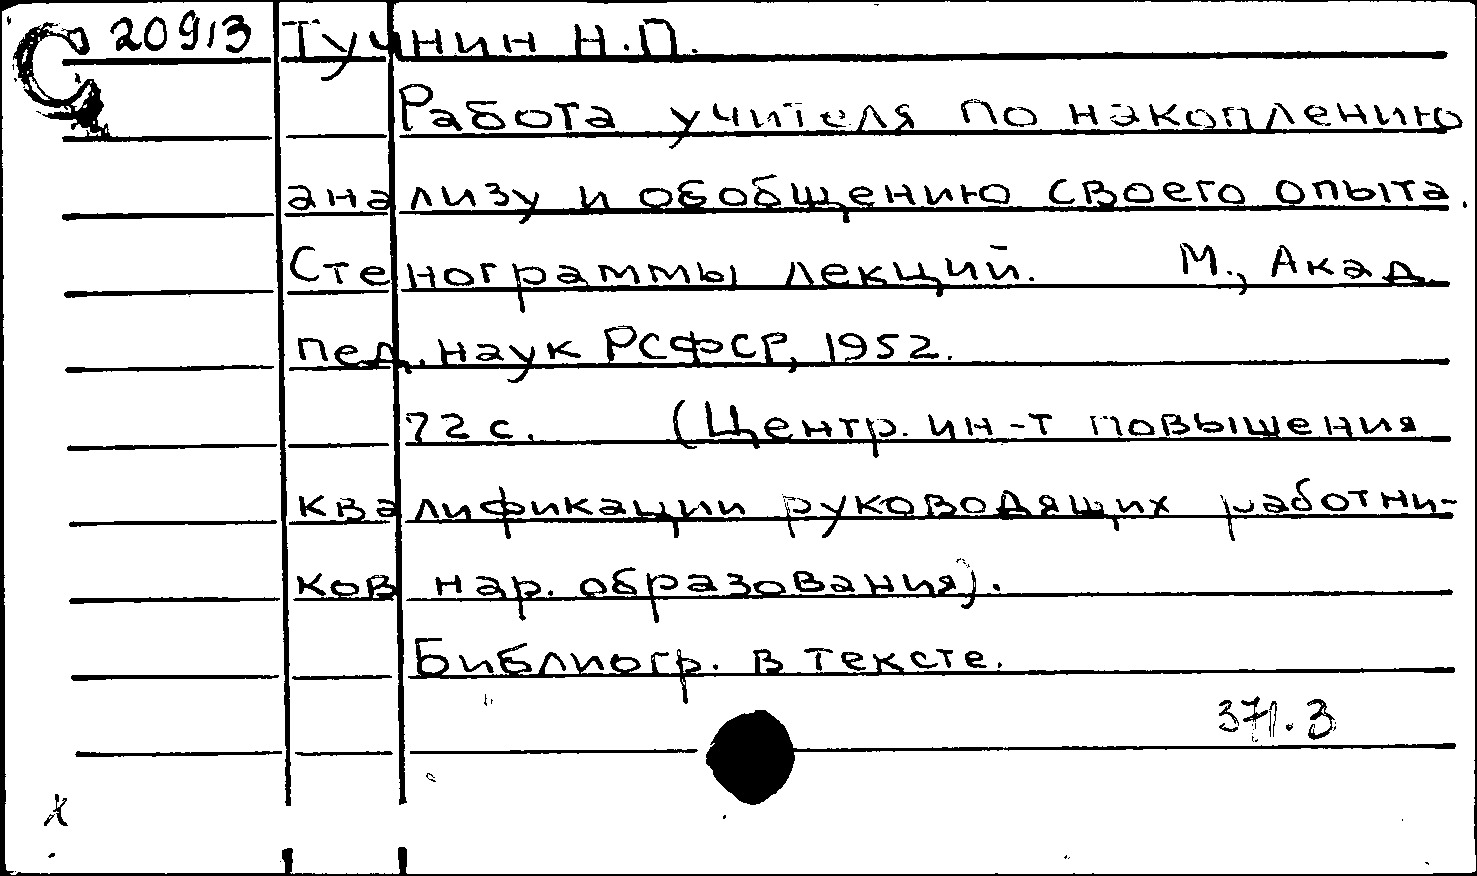 20913 Тучнин Н.П.
Работа учителя по накоплению
анализу и обобщению своего опыта.
Стенограммы лекций. М., Акад.
пед. наук РСФСР, 1952.
72 с. (Центр. ин-т повышения
квалификации руководящих работни-
ков нар. образования).
Библиогр. в тексте.
371.3